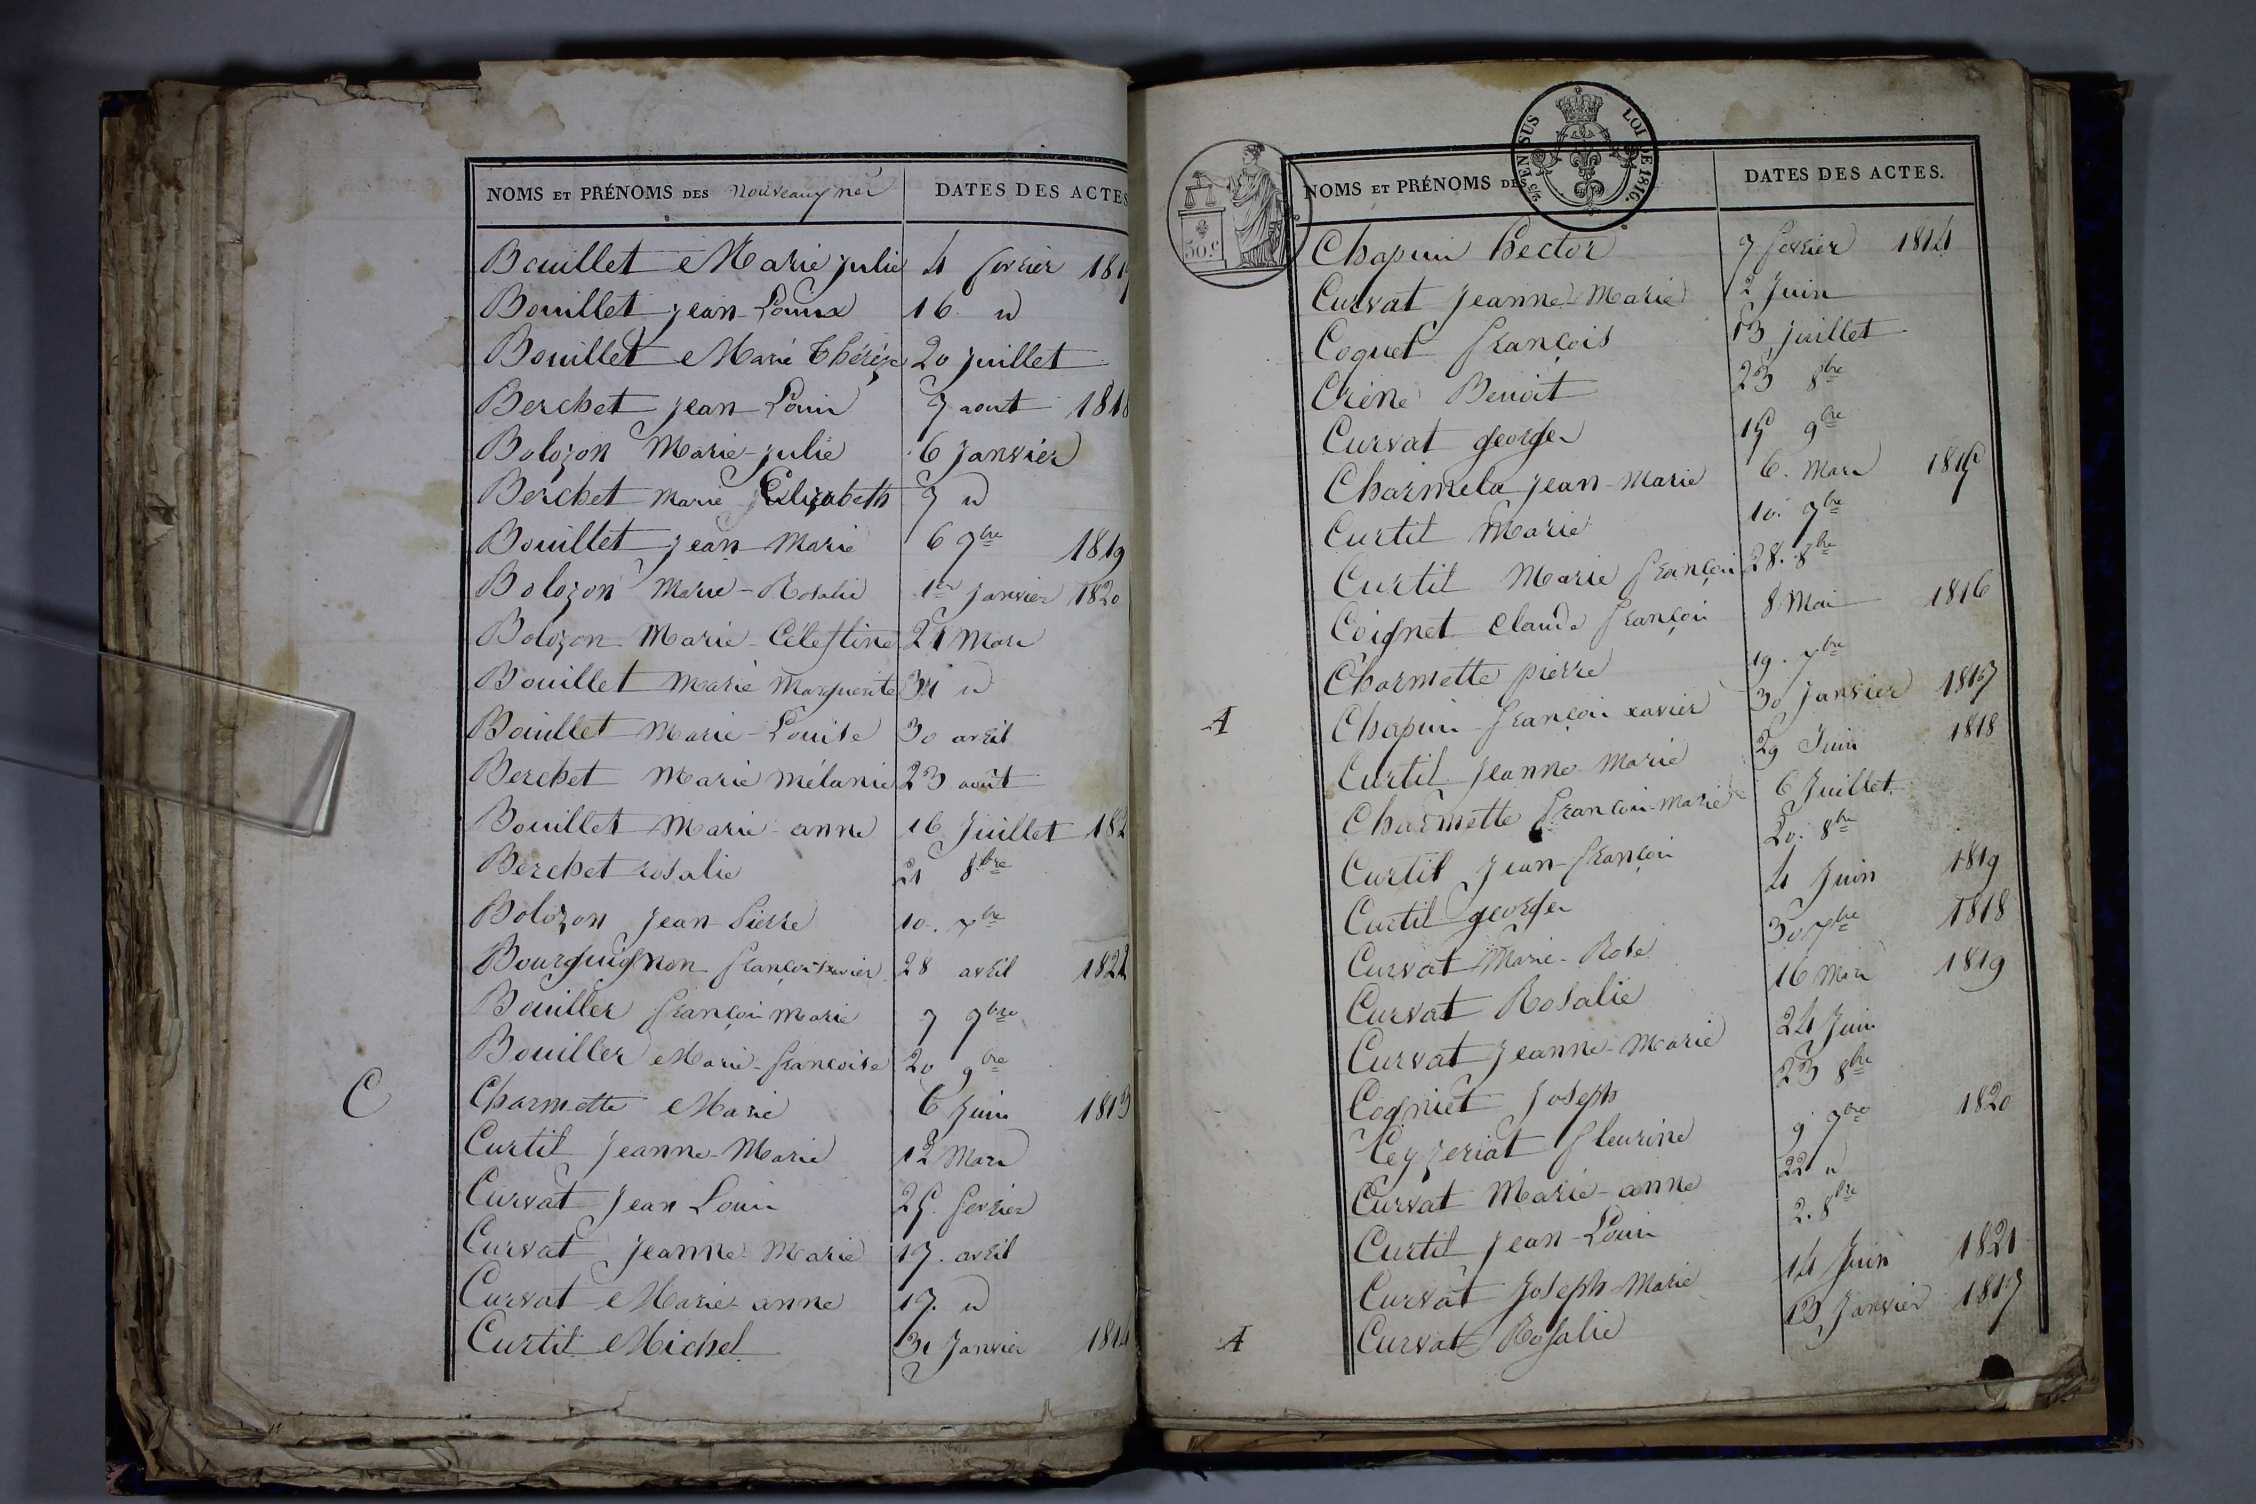 NOMS ET PRÉNOMS DES nouveaux nés DATES DES ACTES
Bouillet Marie julie 4 fevrier 181
Bouillet jean Louis 16 "
Bouillet Marie Thérèze 20 juillet
Berchet jean Louis 7 aout 1818
Bolozon Marie-julie 6 janvier
Berchet Marie Elizabeth 7 "
Bouillet jean Marie 6 7bre 1819
Bolozon Marie-Rosalie 1er janvier 1820
Bolozon Marie-Célestine 21 Mars
Bouillet Marie Marguerite 31 "
Bouillet Marie-Louise 30 avril
Berchet Marie mélanie 23 août
Bouillet Marie-anne 16 Juillet 182
Berchet rosalie 21 8bre
Bolozon jean Pierre 10. xbre
Bourguignon françois xavier 28 avril 1822
Bouiller françois Marie 7 7bre
Bouiller Marie-françoise 20 9bre
C
Charmette Marie 6 Juin 1813
Curtil Jeanne-Marie 12 Mars
Curvat Jean Louis 25 fevrier
Curvat Jeanne Marie 17. avril
Curvat Marie-anne 17. "
Curtil Michel 31 Janvier 1814
2/5 EN SUS LOI DE 1816.
50 c
NOMS ET PRÉNOMS DES DATES DES ACTES.
Chapuis hector 7 fevrier 1814
Curvat Jeanne-Marie 2 Juin
Coquet françois 13 juillet
Crêne Benoit 23 8bre
Curvat georges 15 9bre
Charmela jean-Marie 6. Mars 1815
Curtil Marie 10. 7bre
Curtil Marie françois 28. 8bre
Coignet Claude françois 8 Mai 1816
Charmette pierre 19. xbre
A Chapuis françois xavier 30 Janvier 1817
Curtil Jeanne Marie 29 Juin 1818
Charmette françois-Marie 6 Juillet
Curtil jean-françois 20. 8bre
Curtil georges 4 Juin 1819
Curvat Marie-Rose 30 7bre 1818
Curvat Rosalie 16 Mars 1819
Curvat Jeanne-Marie 24 Juin
Cogniet Joseph 23 8bre
Ceyzeriat fleurine 9 7bre 1820
Curvat Marie-anne 22 "
Curtil Jean-Louis 2. 8bre
Curvat Joseph-Marie 14 Juin 1821
A Curvat Rosalie 13 Janvier 1817